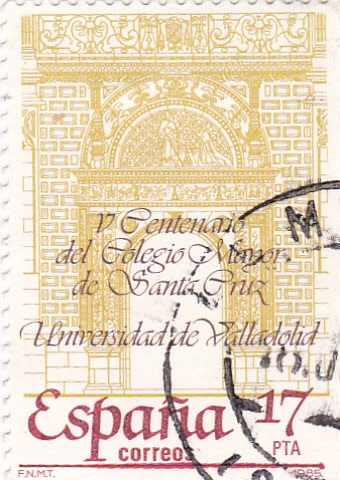 V Centenario
del Colegio Mayor
de Santa Cruz
Universidad de Valladolid
España 17
correos PTA
F.N.M.T. 1985
M